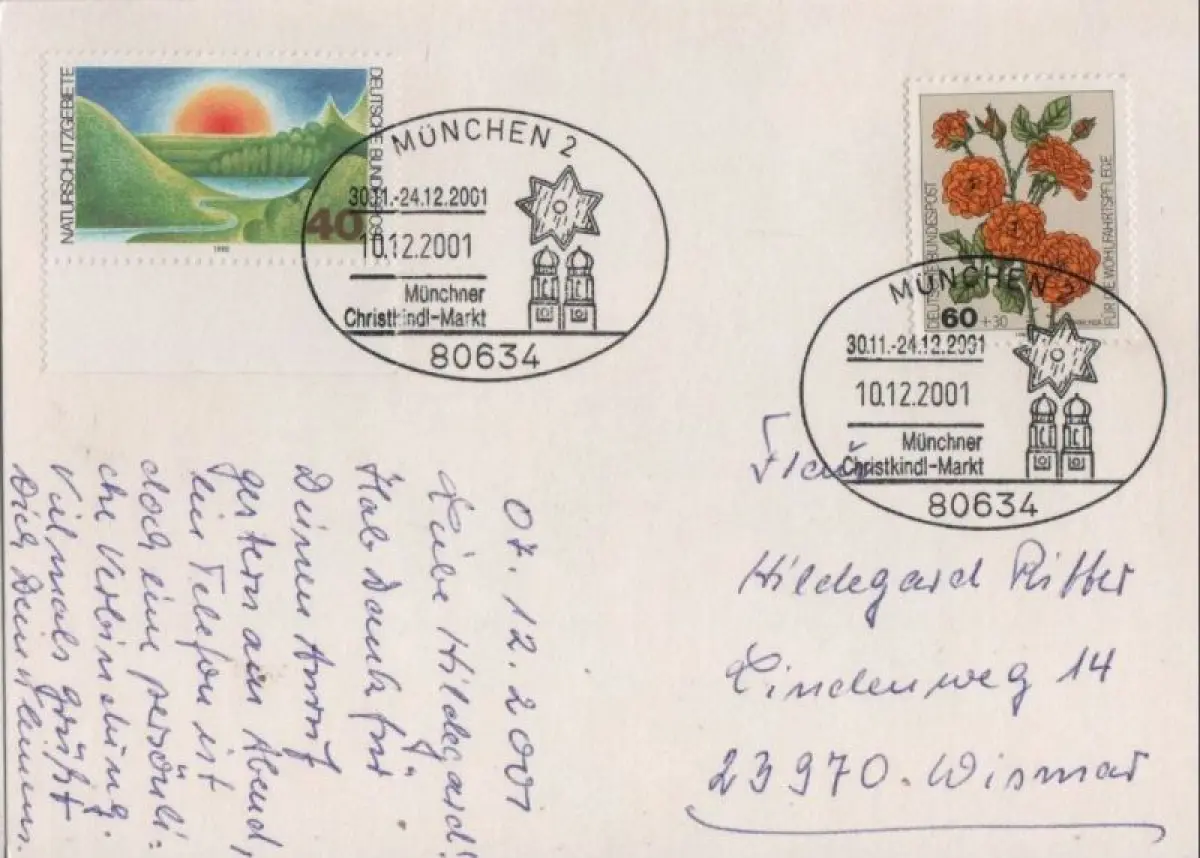 NATURSCHUTZGEBIETE
DEUTSCHE BUNDESPOST
40
1980
MÜNCHEN 2
30.11.-24.12.2001
10.12.2001
Münchner
Christkindl-Markt
80634
DEUTSCHE BUNDESPOST
60 +30
FÜR DIE WOHLFAHRTSPFLEGE
MÜNCHEN
30.11.-24.12.2001
10.12.2001
Münchner
Christkindl-Markt
80634
07.12.2001
Liebe Hildegard!
Hab Dank für
Deinen Anruf
gestern am Abend,
ein Telefon ist
doch eine persönli-
che Verbindung.
Vielmals grüßt
Dich Dein Klemens.
Frau
Hildegard Ritter
Lindenweg 14
23970. Wismar